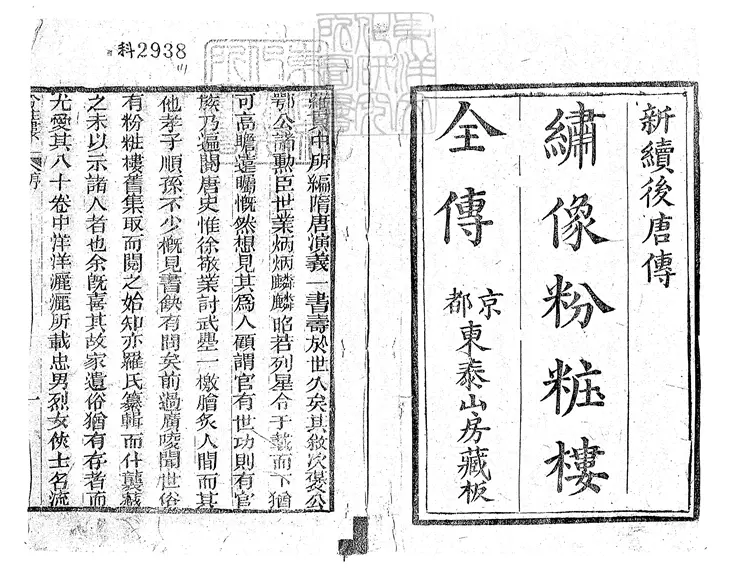 科2938
新續後唐傳
繡像粉粧樓
全傳
京都
東泰山房藏板
羅貫中所編隋唐演義一書壽於世久矣其敘次褒公
鄂公諸勲臣世業炳炳麟麟昭若列星令千載而下猶
可高瞻遠矚慨然想見其為人顧謂官有世功則有官
族乃遍閱唐史惟徐敬業討武曌一檄膾炙人間而其
他孝子順孫不少概見書缺有間矣前過廣陵聞世俗
有粉粧樓舊集取而閱之始知亦羅氏纂輯而什襲藏
之未以示諸人者也余既喜其故家遺俗猶有存者而
尤愛其八十卷中洋洋灑灑所載忠男烈女俠士名流
序
一